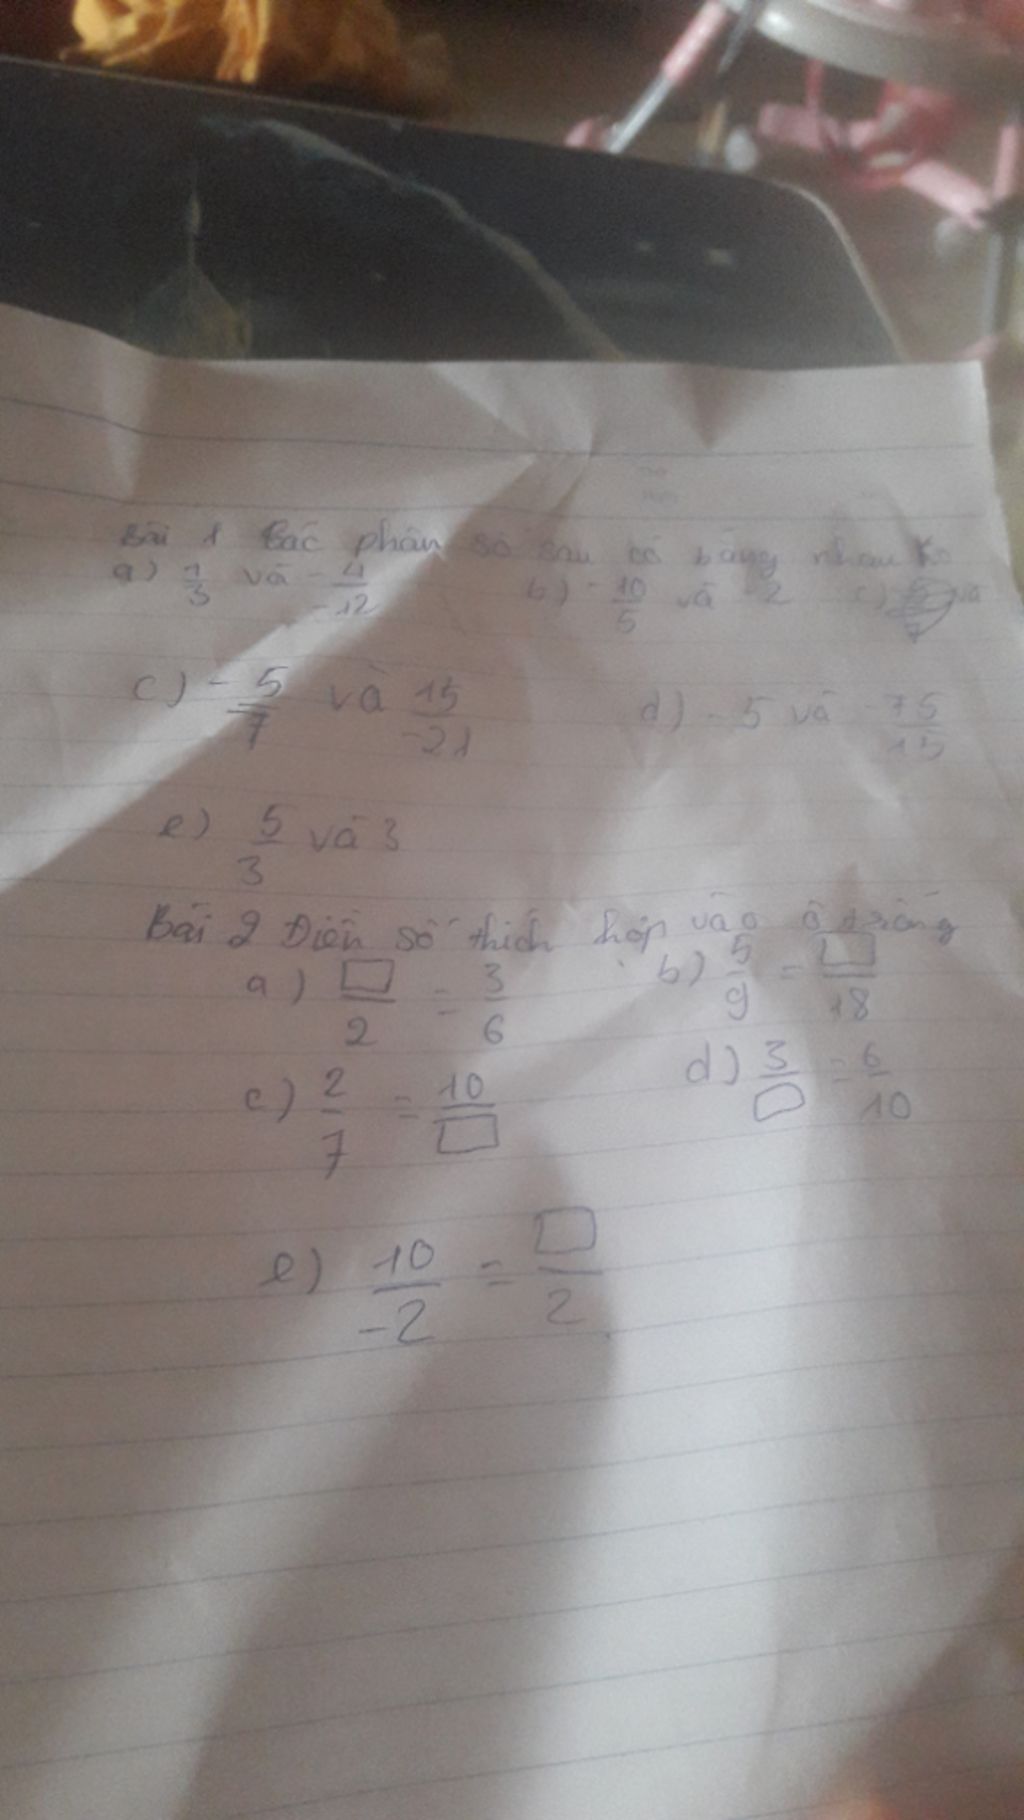 Bài 1 Các phân số sau có bằng nhau ko
a) 1/3 và -4/-12 b) -10/5 và -2 c) và
c) -5/7 và 15/-21 d) -5 và -75/15
e) 5/3 và 3
Bài 2 Điền số thích hợp vào ô trống
a) □/2 = 3/6 b) 5/9 = □/18
c) 2/7 = 10/□ d) 3/□ = 6/10
e) 10/-2 = □/2